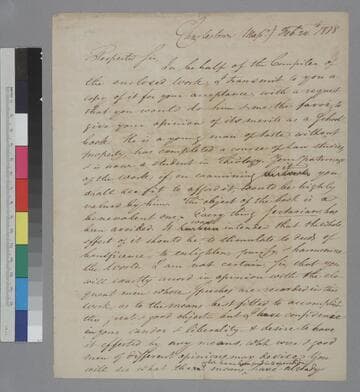 Charlestown Mass.) Feb. 20th 1818
Respected Sir,
In behalf of the Compiler of
the enclosed work I transmit to you a
copy of it for your acceptance with a request
that you would do him & me the favor to
give your opinion of its merits as a School
book. He is a young man of taste without
property has completed a course of law studies,
& is now a student in Theology. Your patronage
of the work, if on examining it you
shall see fit to afford it, would be highly
valued by him. The object of the book is a
benevolent one; every thing sectarian has
been avoided. It was intended that the whole
effect of it should be to stimulate to deeds of
beneficence, to enlighten, purify & harmonize
the World. I am not certain, Sir, that you
will exactly accord in opinion with the elo-
quent men whose Speeches are recorded in this
work as to the means best fitted to accomplish
this great & good object; but I have confidence
in your candor & liberality & desire to have
it effected by any means, which wise & good
men of different opinions may devise. You
will see what these means have already